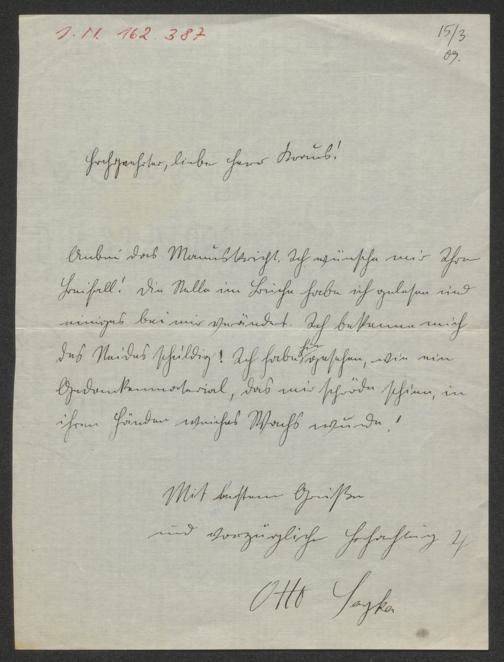 J. N. 162.387
15/3
09.
Hochgeehrter, lieber Herr Kraus!
Anbei das Manuskript. Ich wünsche mir Ihren
Beifall! Die Stelle im Buche habe ich gelesen und
einiges bei mir verändert. Ich bekenne mich
des Neides schuldig! Ich habe gesehen, wie ein
Gedankenmaterial, das mir spröde schien, in
ihren Händen weiches Wachs wurde!
Mit besten Grüßen
und vorzüglicher Hochachtung
Otto Soyka